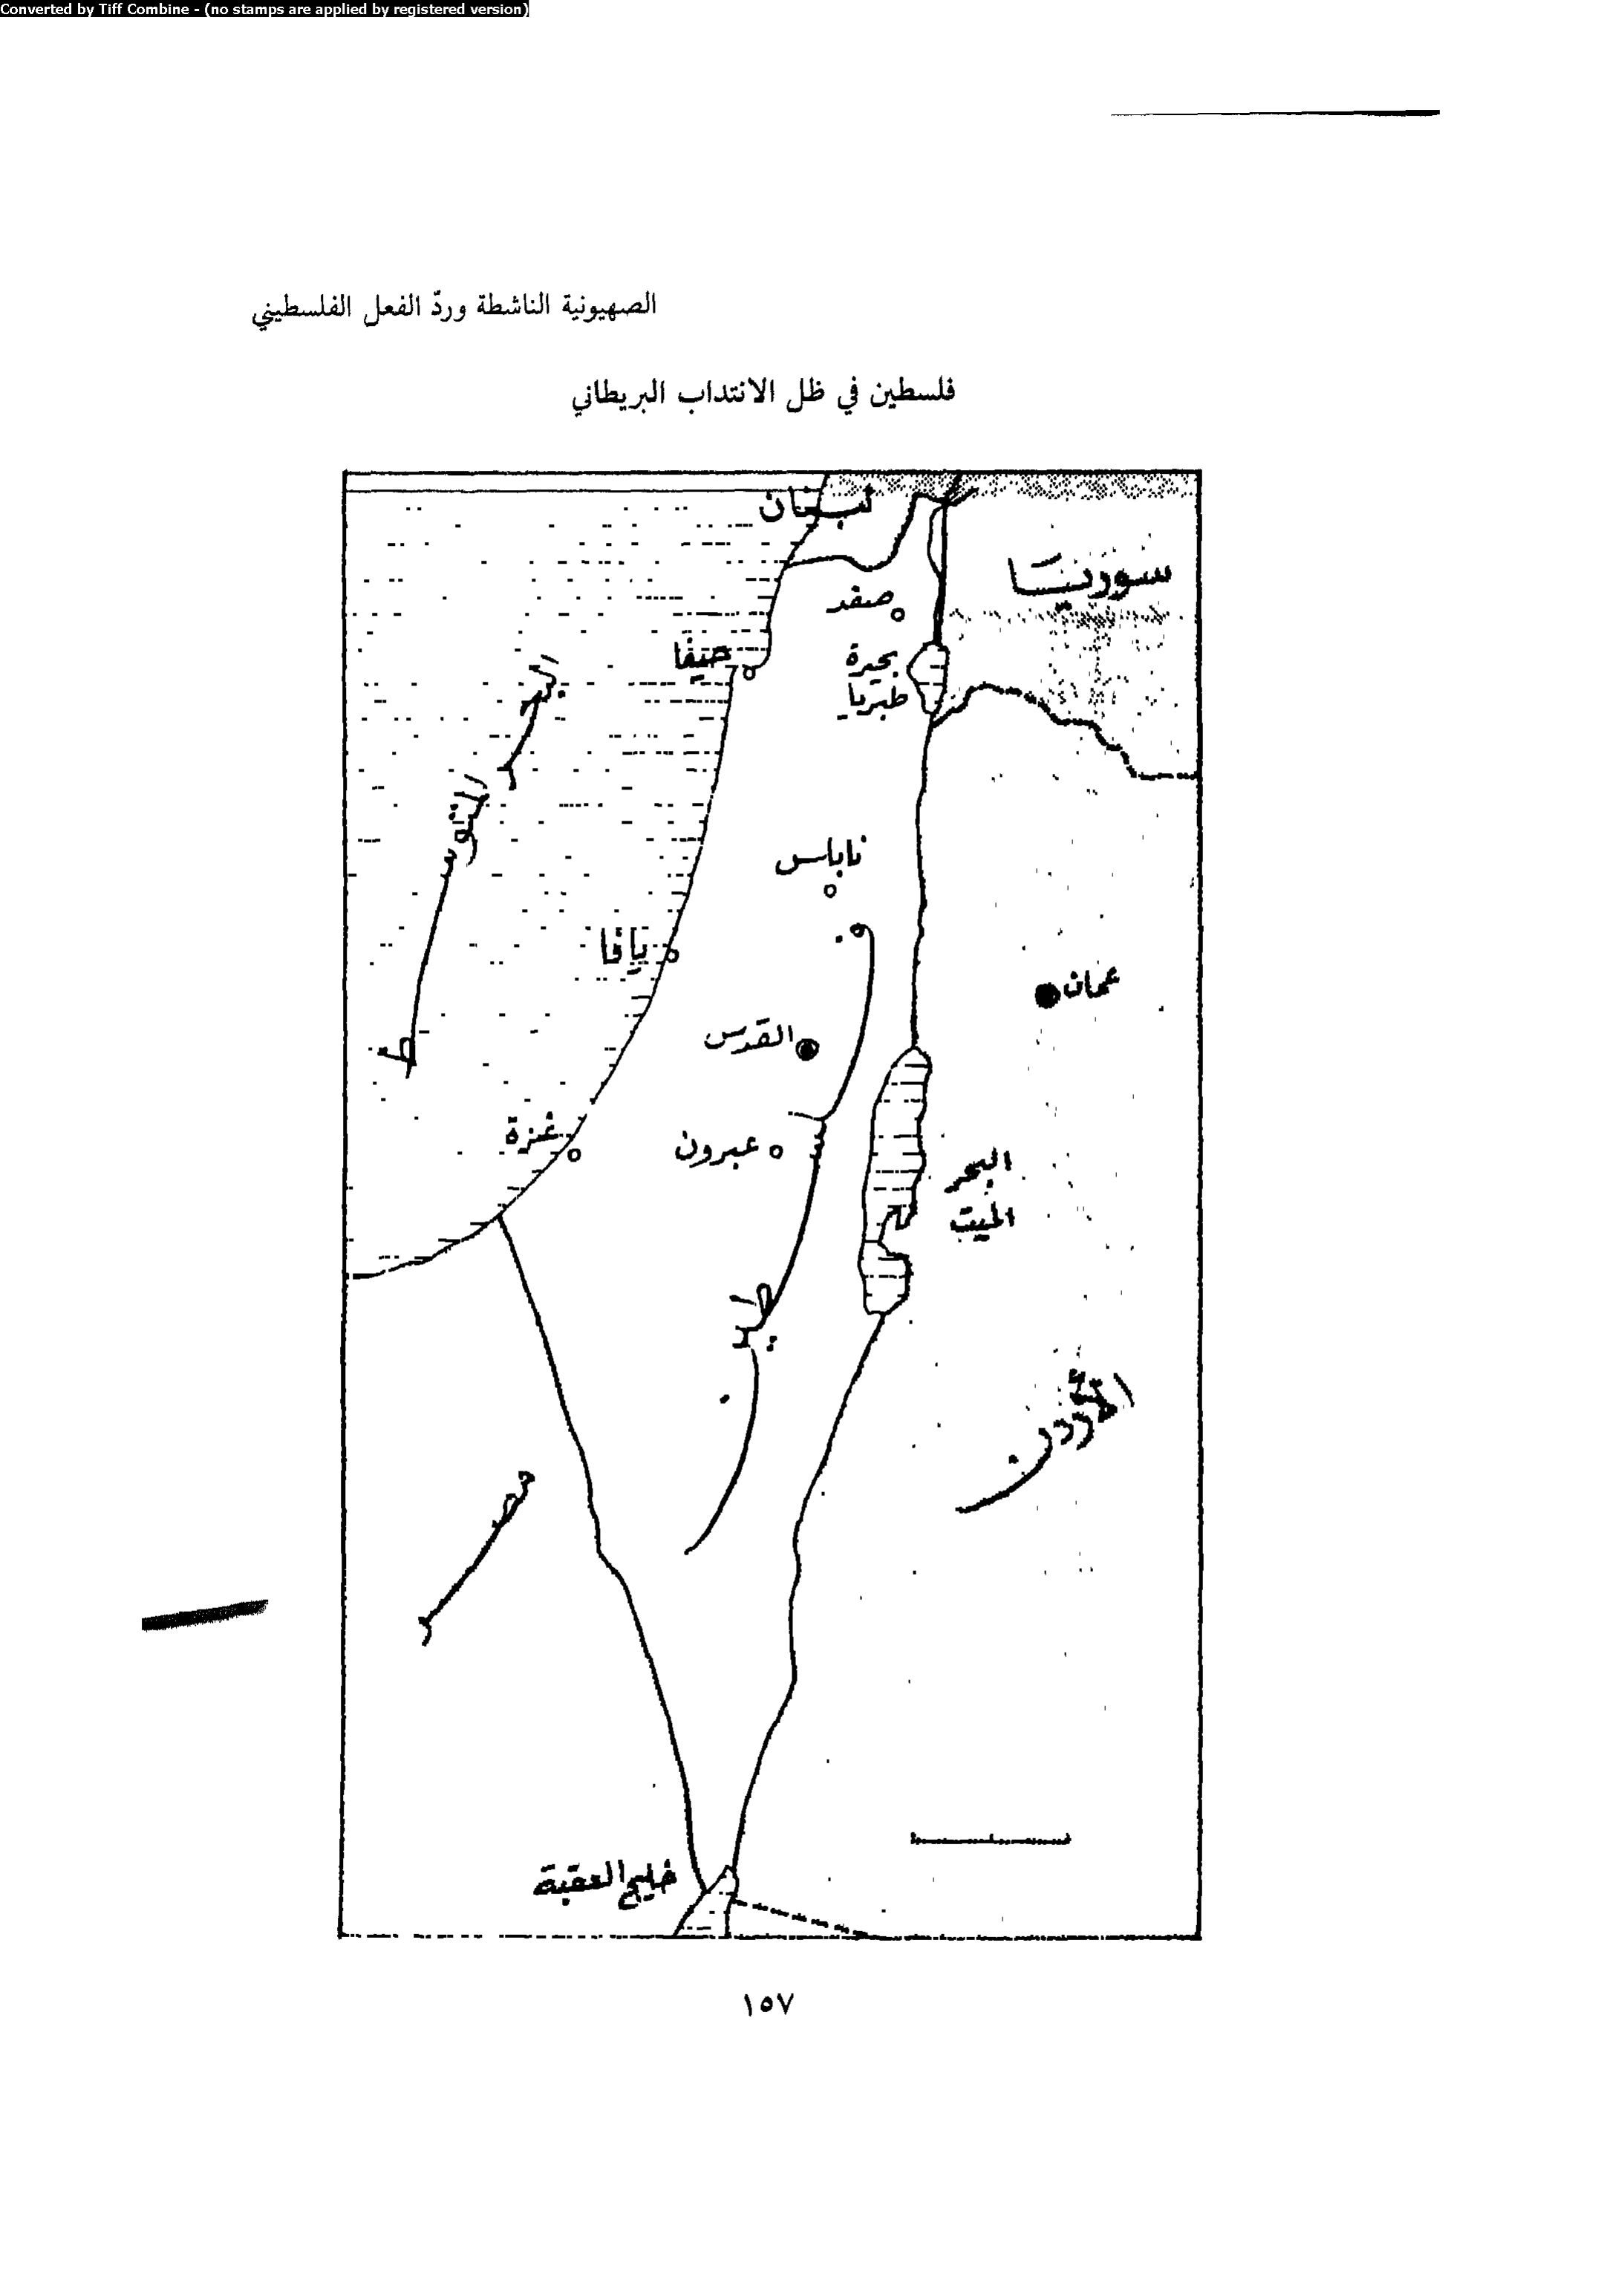 Converted by Tiff Combine - (no stamps are applied by registered version)
الصهيونية الناشطة وردّ الفعل الفلسطيني
فلسطين في ظل الانتداب البريطاني
لبنان
سوريّا
صفد
حيفا
بحيرة
طبريا
البحر المتوسط
نابلس
يافا
عمان
القدس
غزة
عبرون
البحر
الميت
فلسطين
الأردن
مصر
خليج العقبة
١٥٧